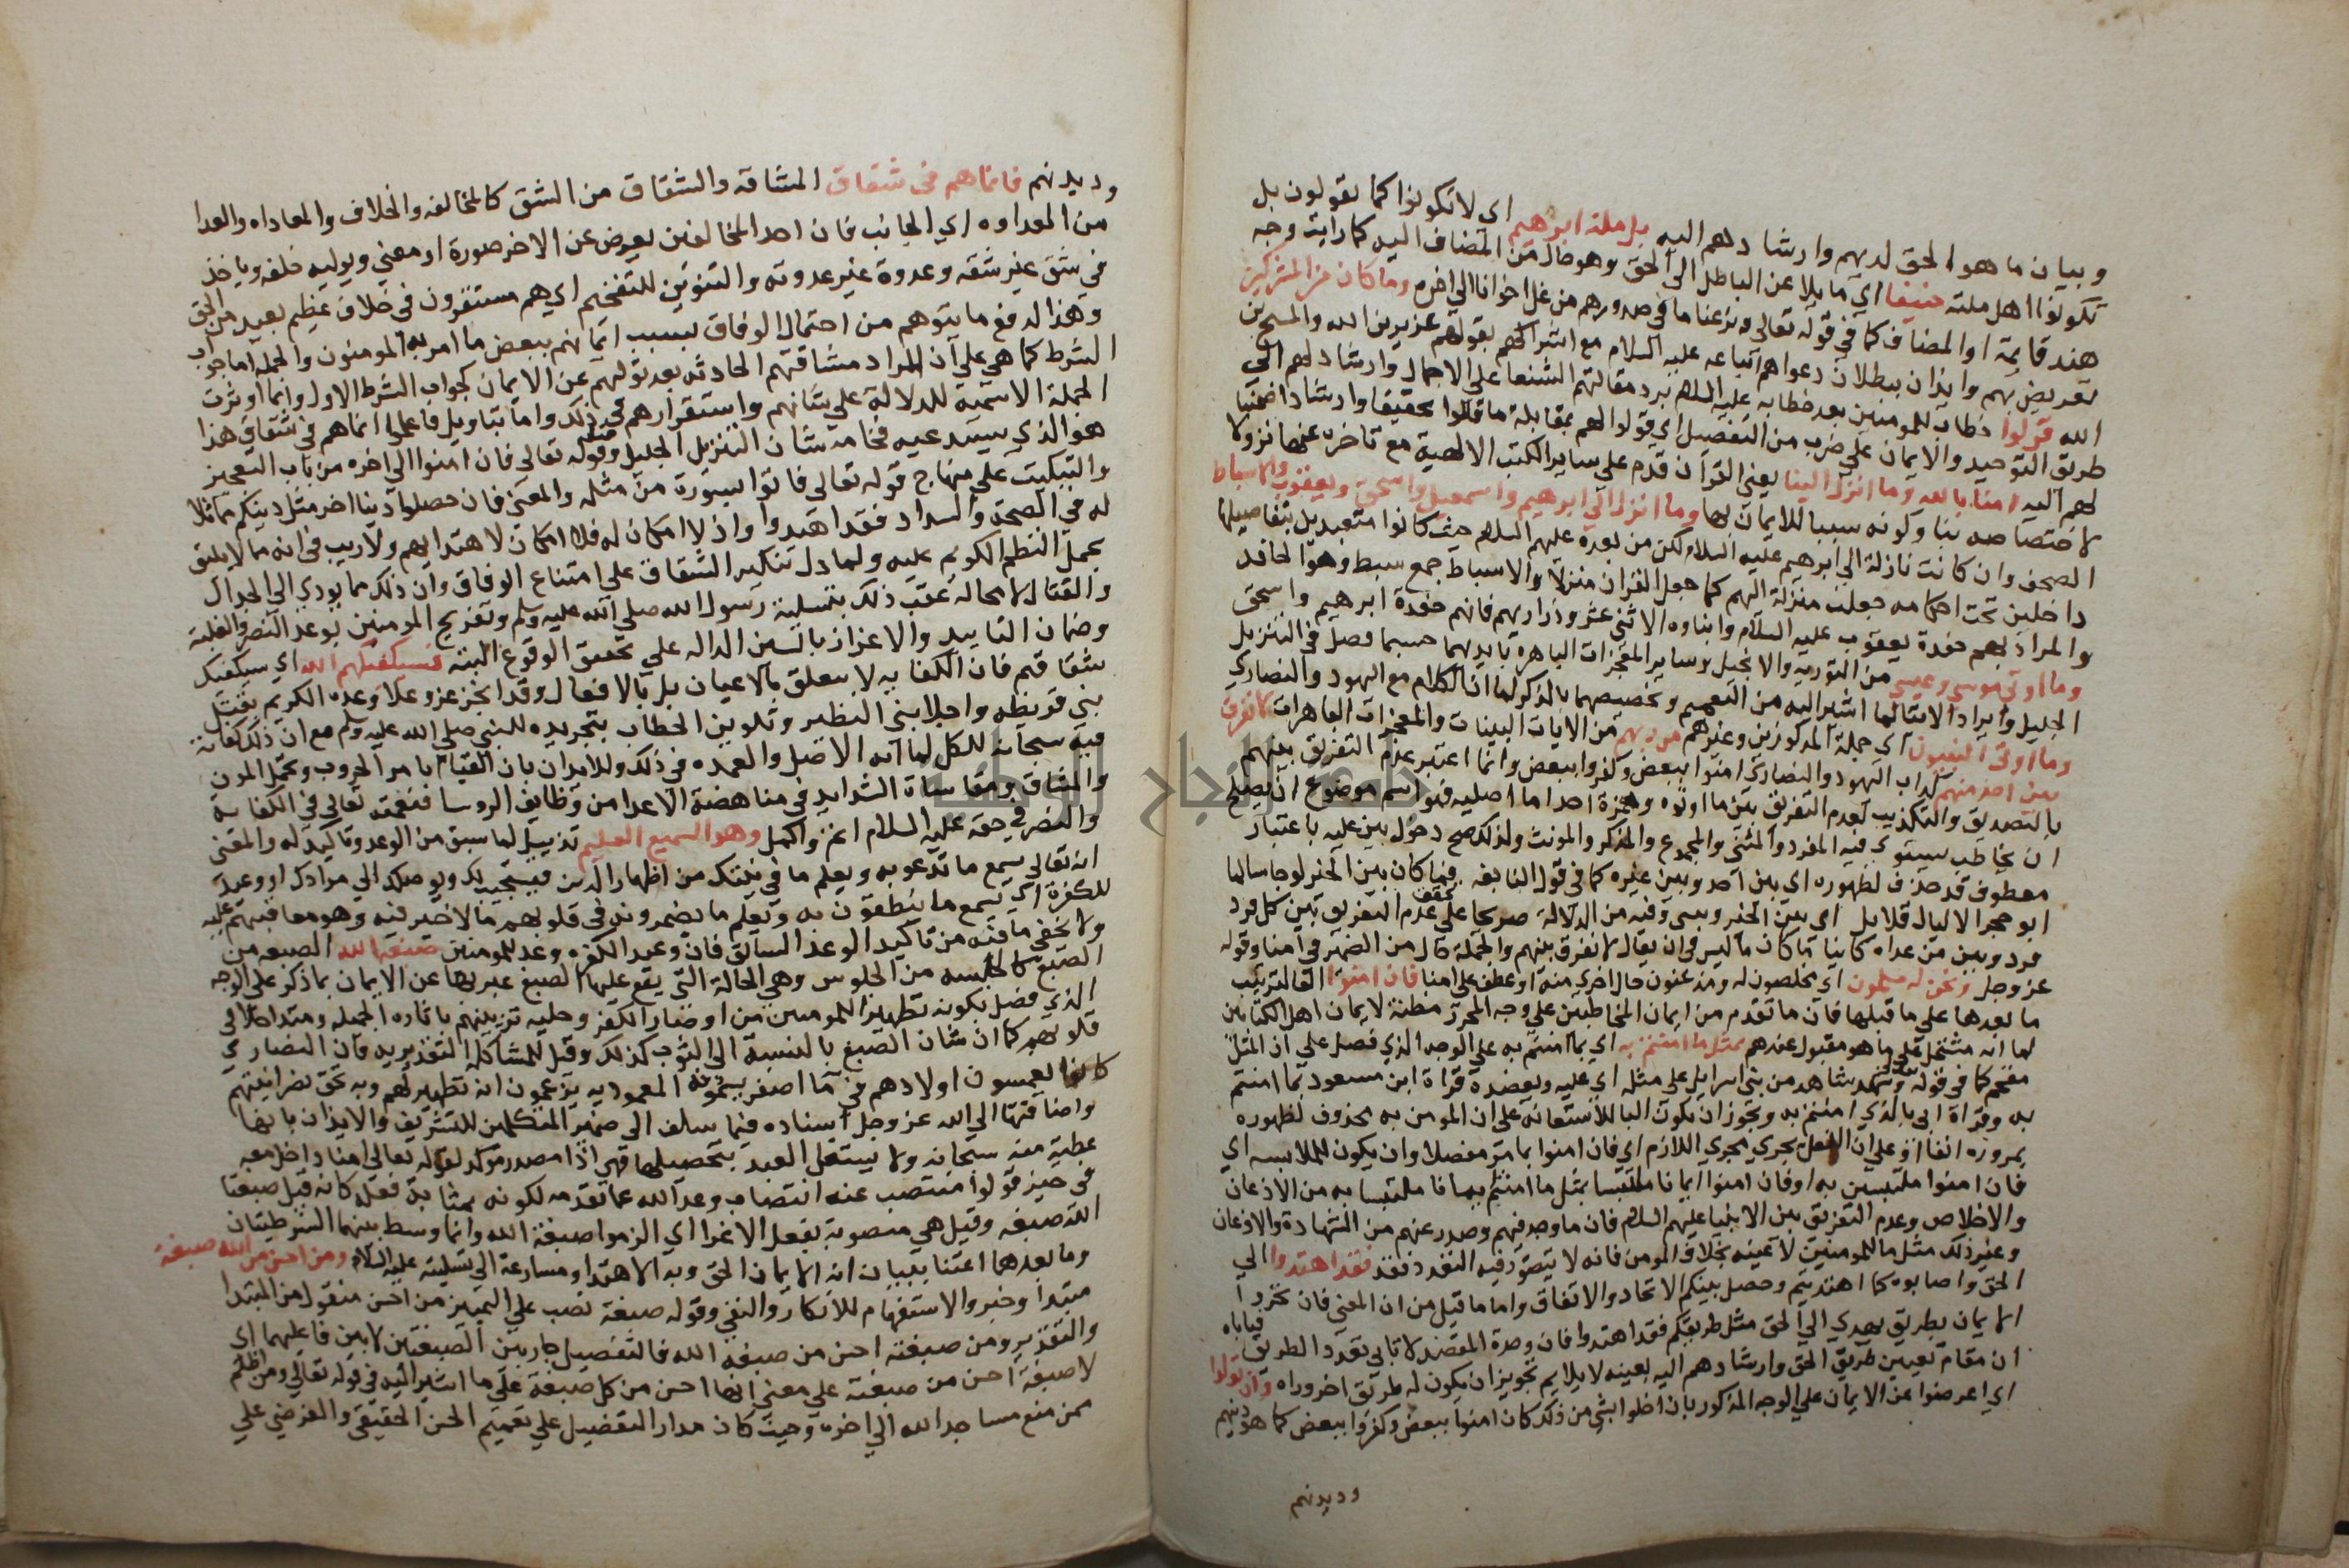 وبيان ما هو الحق لديهم وارشادهم اليه بل ملة ابرهيم اي لا نكون كما يقولون بل
نكون اهل ملته حنيفا اي مايلا عن الباطل الي الحق وهو حال من المضاف اليه كما رايت وجه
هند قايمة او المضاف كما في قوله تعالي ونزعنا ما في صدورهم من غل اخوانا الي اخره وما كان من المشركين
تعريض بهم وايذان ببطلان دعواهم اتباعه عليه السلام مع اشراكهم بقولهم عزير بن الله والمسيح بن
الله قولوا خطاب للمومنين بعد خطابه عليه السلام برد مقالتهم الشنعا علي الاجمال وارشاد لهم الي
طريق التوحيد والايمان علي ضرب من التفصيل اي قولوا لهم بمقابلة ما قالوا تحقيقا وارشادا ضمنيا
لهم اليه امنا بالله وما انزل الينا يعني القرآن قدم علي ساير الكتب الالهية مع تاخره عنها نزولا
لاختصاصه بنا وكونه سببا للايمان بها وما انزل الي ابرهيم واسمعيل واسحق ويعقوب والاسباط
الصحف وان كانت نازلة الي ابرهيم عليه السلام لكن من بعده عليهم السلام حيث كانوا متعبدين بتفاصيلها
داخلين تحت احكامه جعلت منزلة اليهم كما جعل القران منزلا والاسباط جمع سبط وهو الحافد
والمراد بهم حفدة يعقوب عليه السلام وابناوه الاثني عشر وذراريهم فانهم حفدة ابرهيم واسحق
وما اوتي موسي وعيسي من التورية والانجيل وساير المعجزات الباهرة بايديهما حسبما فصل في التنزيل
الجليل وايراد الايتا لما اشير اليه من التعميم وتخصيصهما بالذكر لما ان الكلام مع اليهود والنصاري
وما اوتي النبيون اي جملة المذكورين وغيرهم من ربهم من الايات البينات والمعجزات القاهرات لا نفرق
بين احد منهم كداب اليهود والنصاري امنوا ببعض وكفروا ببعض وانما اعتبر عدم التفريق بينهم
بالتصديق والتكذيب لعدم التفريق بين ما اوتوه وهمزة احد اما اصلية فهو اسم موضوع لمن يصلح
ان يخاطب يستوي فيه المفرد والمثني والمجموع والمذكر والمونث ولذلك صح دخول بين عليه باعتبار
معطوف قد حذف لظهوره اي بين احد وبين غيره كما في قول النابغة فما كان بين الخير لو جا سالما
ابو حجر الا ليال قلايل اي بين الخير وبيني وفيه من الدلالة صريحا علي تحقق عدم التفريق بين كل فرد
فرد وبين من عداه كاينا ما كان ما ليس في ان يقال لا نفرق بينهم والجملة حال من الضمير في امنا وقوله
عز وجل ونحن له مسلمون اي مخلصون له ومذعنون حال اخري منه او عطف علي امنا فان امنوا الفا لترتيب
ما بعدها علي ما قبلها فان ما تقدم من ايمان المخاطبين علي وجه المحرر مظنة لايمان اهل الكتابين
لما انه مشتمل علي ما هو مقبول عندهم بمثل ما امنتم به اي بما امنتم به علي الوجه الذي فصل علي ان المثل
مقحم كما في قوله وشهد شاهد من بني اسرايل علي مثله اي عليه ويعضده قراة ابن مسعود بما امنتم
به وقراة ابي بالذي امنتم به ويجوز ان يكون البا للاستعانة علي ان المومن به محذوف لظهوره
بمروره انفا او علي ان الفعل مجري مجري اللازم اي فان امنوا بما مر مفصلا وان يكون للملابسه اي
فان امنوا ملتبسين به او فان امنوا ايمانا ملتبسا بمثل ما امنتم ايمانا ملتبسا به من الاذعان
والاخلاص وعدم التفريق بين الانبيا عليهم السلام فان ما وجد فيهم وصدر عنهم من الشهادة والاذعان
وغير ذلك مثل ما للمومنين لا عينه بخلاف المومن فانه لا يتصور فيه التعدد فقد فقد اهتدوا الي
الحق واصابوه كما اهتديتم وحصل بينكم الاتحاد والاتفاق واما ما قيل من ان المعني فان تحروا
الايمان بطريق يهدي الي الحق مثل طريقكم فقد اهتدوا فان وحدة المقصد لا تابي تعدد الطريق فياباه
ان مقام تعيين طريق الحق وارشادهم اليه بعينه لا يلايم تجويز ان يكون له طريق اخر وراه وان تولوا
اي اعرضوا عن الايمان علي الوجه المذكور بان اخلوا بشي من ذلك كان امنوا ببعض وكفروا ببعض كما هو دينهم
وديدنهم
وديدنهم فانما هم في شقاق المشاقة والشقاق من الشق كالمخالفه والخلاف والمعاداه والعدا
من العداوه اي الجانب فان احد المخالفين يعرض عن الاخر صورة او معني ويوليه خلفه وياخذ
في شق غير شقه وعدوة غير عدوته والتنوين للتفخيم اي هم مستقرون في خلاف عظيم بعيد من الحق
وهذا لدفع ما يتوهم من احتمال الوفاق بسبب ايمانهم ببعض ما امن به المومنون والجملة اما جواب
الشرط كما هي علي ان المراد مشاقتهم الحادثه بعد توليهم عن الايمان كجواب الشرط الاول وانما اوثرت
الجملة الاسمية للدلالة علي ثباتهم واستقرارهم في ذلك واما بتاويل فاعلموا انما هم في شقاق هذا
هو الذي يستدعيه فخامة شان التنزيل الجليل وقيل قوله تعالي فان امنوا الي اخره من باب التعجيز
والتبكيت علي منهاج قوله تعالي فاتوا بسورة من مثله والمعني فان حصلوا دينا اخر مثل دينكم مماثلا
له في الصحة والسداد فقد اهتدوا واذ لا امكان له فلا امكان لاهتدايهم ولا ريب في انه مما لا يليق
بحمل النظم الكريم عليه ولما دل تنكير الشقاق علي امتناع الوفاق وان ذلك مما يودي الي الجدال
والقتال لا محالة عقب ذلك بتسلية رسول الله صلي الله عليه وسلم وتفريح المومنين بوعد النصر والغلبة
وضمان التاييد والاعزاز بالسين الداله علي تحقق الوقوع البتة فسيكفيكهم الله اي سيكفيك
شقاقهم فان الكفايه لا يتعلق بالاعيان بل بالافعال وقد انجز عز وعلا وعده الكريم بقتل
بني قريظه واجلا بني النظير وتلوين الخطاب بتجريده للنبي صلي الله عليه وسلم مع ان ذلك كفاية
منه سبحانه للكل لما انه الاصل والعمده في ذلك وللايذان بان القيام بامر الحروب وتحمل المون
والمشاق ومقاساة الشدايد في مناهضة الاعدا من وظايف الروسا فنعمته تعالي في الكفاية
والنصر في حقه عليه السلام اتم واكمل وهو السميع العليم تذييل لما سبق من الوعد وتاكيد له والمعني
انه تعالي يسمع ما تدعو به ويعلم ما في نيتك من اظهار الدين فيستجيب لك ويوصلك الي مرادك او وعيد
للكفرة اي يسمع ما ينطقون به ويعلم ما يضمرونه في قلوبهم مما لا خير فيه وهو معاقبهم عليه
ولا يخفي ما فيه من تاكيد الوعد السابق فان وعيد الكفره وعد للمومنين صبغة الله الصبغه من
الصبغ كالجلسه من الجلوس وهي الحالة التي يقع عليها الصبغ عبر بها عن الايمان بما ذكر علي الوجه
الذي فصل لكونه تطهيرا للمومنين من اوضار الكفر وحلية تزينهم باثاره الجميله ومتداخلا في
قلوبهم كما ان شان الصبغ بالنسبة الي الثوب كذلك وقيل للمشاكلة التقديريه فان النصاري
كانوا يغمسون اولادهم في ما اصفر يسمونه المعموديه يزعمون انه تطهير لهم وبه يحق نصرانيتهم
واضافتها الي الله عز وجل اسناده فيما سلف الي ضمير المتكلمين للتشريف والايذان بانها
عطية منه سبحانه ولا يستقل العبد بتحصيلها فهي اذا مصدر موكد لقوله تعالي امنا داخل معه
في حيز قولوا منتصب عنه انتصاب وعد الله عما تقدمه لكونه بمثابة فعله كانه قيل صبغنا
الله صبغه وقيل هي منصوبة بفعل الاغرا اي الزموا صبغة الله وانما وسط بينهما الشرطيتان
وما بعدهما اعتنا ببيان انه الايمان الحق وبه الاهتدا ومسارعة الي تسليته عليه السلام ومن احسن من الله صبغة
مبتدا وخبر والاستفهام للانكار والنفي وقوله صبغة نصب علي التمييز من احسن منقول من المبتدا
والتقدير ومن صبغته احسن من صبغة الله فالتفضيل جار بين الصبغتين لا بين فاعليهما اي
لا صبغة احسن من صبغته علي معني انها احسن من كل صبغة علي ما اشير اليه في قوله تعالي ومن اظلم
ممن منع مساجد الله الي اخره وحيث كان مدار التفضيل علي تعميم الحسن الحقيقي والفرضي علي